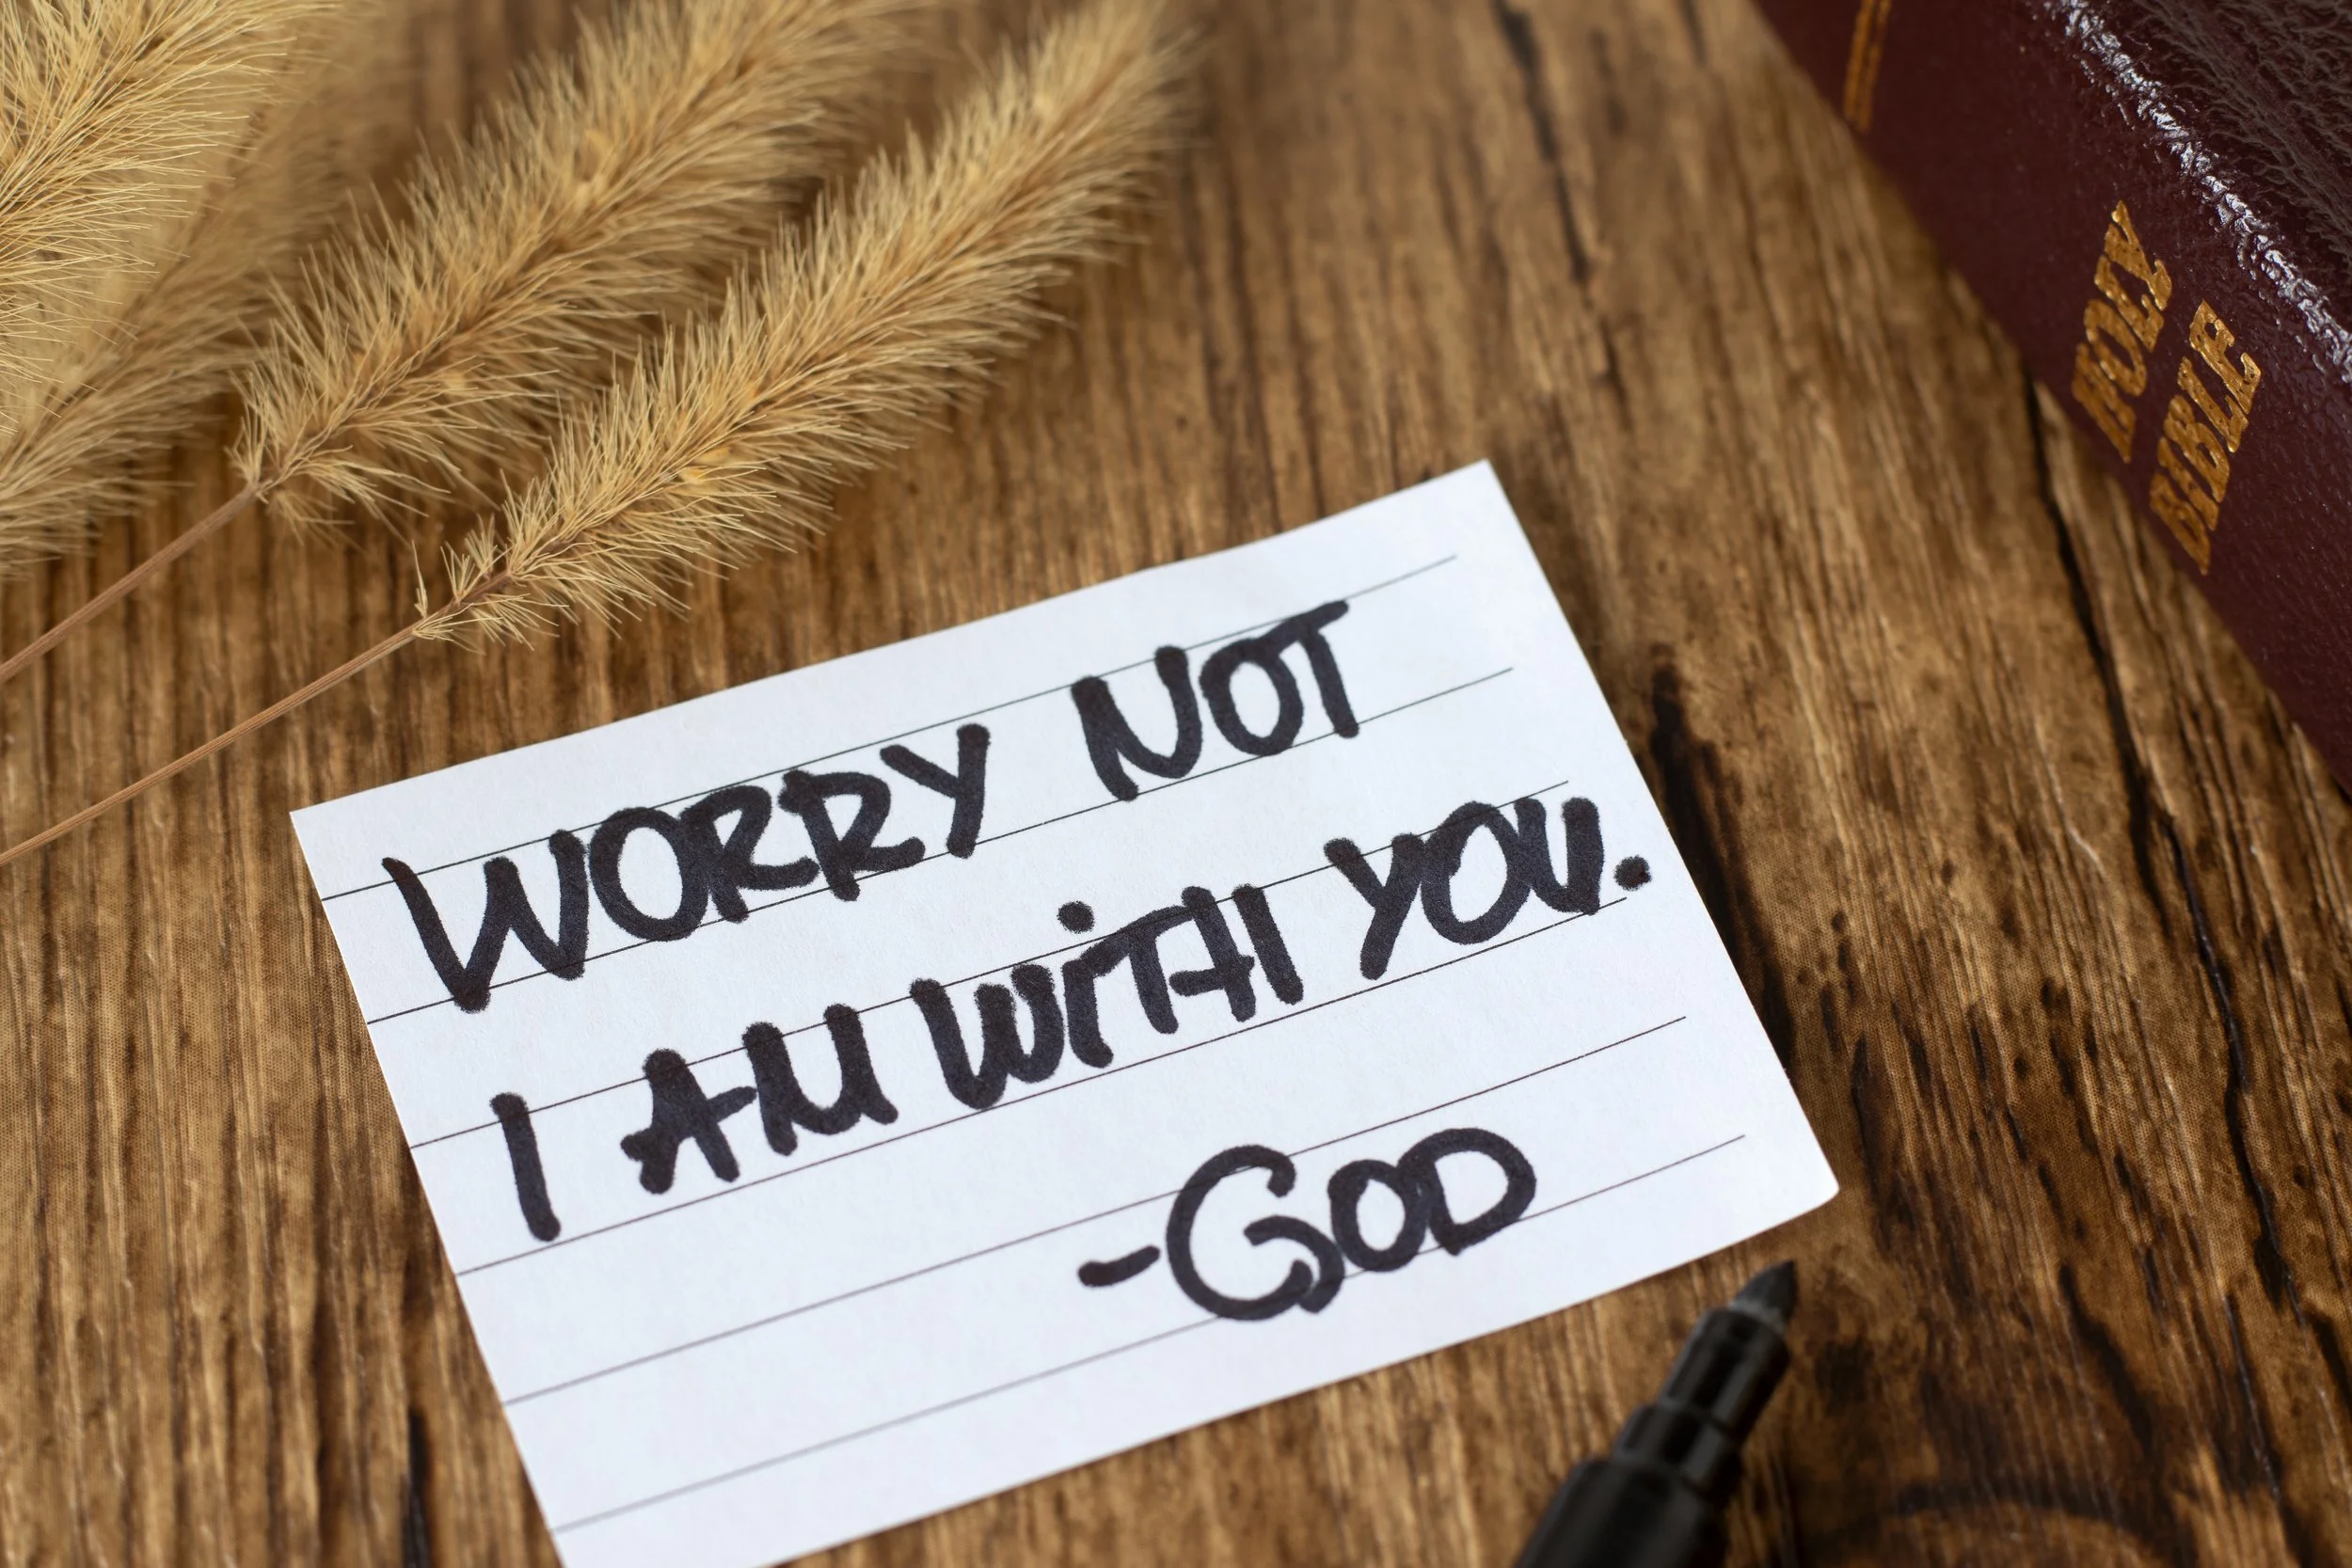 WORRY NOT
I AM WiTH YOU.
-GOD
HOLY
BIBLE